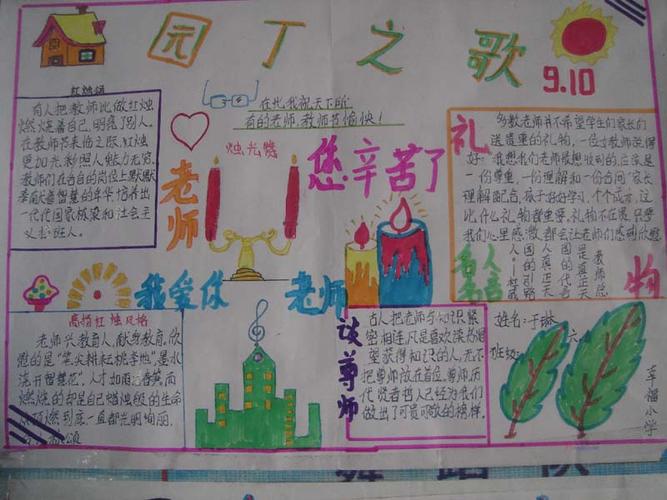 园丁之歌
9.10
红烛颂
在此我祝天下所
有的老师,教师节愉快!
有人把教师比做红烛
燃烧着自己,明亮了别人。
在教师节来临之际,红烛
更加光彩照人,魅力无穷。
教师们在各自的岗位上默默
奉献着智慧的年华,培养出
一代代国家栋梁和社会主
义接班人。
烛光赞
老师
您辛苦了
礼
物
多数老师并不希望学生们家长们
送贵重的礼物,一位女教师说得
好:我想我们老师最想收到的,应该是
一份尊重,一份理解和一份合同"家长
理解配合,孩子好好学习,个个成才,这
比什么礼物都重要。礼物不在重,只要
我们心里感激,都会让老师们感到欣慰
名人
名言
我爱你
老师
高惜红烛风格
老师兴教育人,献身教育,欣
慰的是"笔尖耕耘桃李地",墨水
浇开智慧花",人才如雨后春
燃烧的却是自己蜡烛般的生命
燃到底一直都光明绚丽。
谈尊师
古人把老师与知识紧
密相连,凡是喜欢读书渴
望获得知识的人,无不
把尊师放在首位。尊师,历
代贤者哲人已经为我们
做出了可贵可敬的榜样。
姓名:于琳
班级:六
车福小学